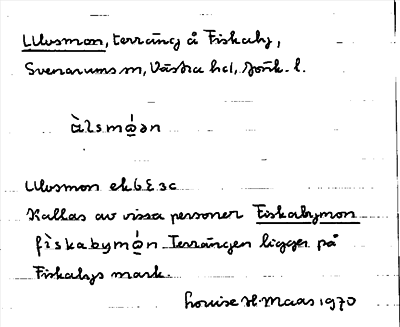 Ulvsmon, terräng å Fiskaby,
Svenarums sn, Västra hd, Jönk. l.
àlsmó̱ən
Ulvsmon ek 6E 3c
Kallas av vissa personer Fiskabymon
fìskabymó̱n Terrängen ligger på
Fiskabys mark.
Louise H. Maas 1970